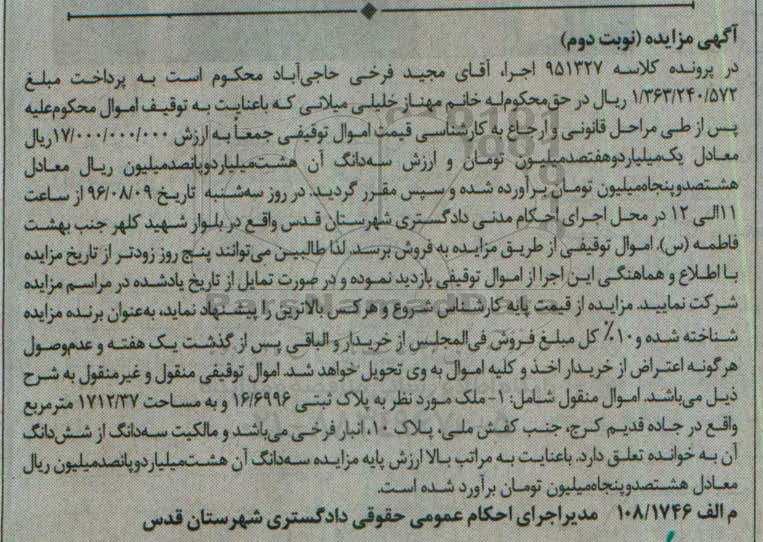 آگهی مزایده (نوبت دوم)
در پرونده کلاسه ۹۵۱۳۲۷ اجرا، آقای مجید فرخی حاجی‌آباد محکوم است به پرداخت مبلغ
۱/۳۶۳/۲۴۰/۵۷۲ ریال در حق‌محکوم‌له خانم مهناز خلیلی میلانی که باعنایت به توقیف اموال محکوم‌علیه
پس از طی مراحل قانونی و ارجاع به کارشناسی قیمت اموال توقیفی جمعاً به ارزش ۱۷/۰۰۰/۰۰۰/۰۰۰ریال
معادل یک‌میلیاردوهفتصدمیلیون تومان و ارزش سه‌دانگ آن هشت‌میلیاردوپانصدمیلیون ریال معادل
هشتصدوپنجاه‌میلیون تومان برآورده شده و سپس مقرر گردید. در روز سه‌شنبه تاریخ ۹۶/۰۸/۰۹ از ساعت
۱۱الی ۱۲ در محل اجرای احکام مدنی دادگستری شهرستان قدس واقع در بلوار شهید کلهر جنب بهشت
فاطمه (س)، اموال توقیفی از طریق مزایده به فروش برسد. لذا طالبین می‌توانند پنج روز زودتر از تاریخ مزایده
با اطلاع و هماهنگی این اجرا از اموال توقیفی بازدید نموده و در صورت تمایل از تاریخ یادشده در مراسم مزایده
شرکت نمایید. مزایده از قیمت پایه کارشناس شروع و هرکس بالاترین را پیشنهاد نماید، به‌عنوان برنده مزایده
شناخته شده و ۱۰٪ کل مبلغ فروش فی‌المجلس از خریدار و الباقی پس از گذشت یک هفته و عدم‌وصول
هرگونه اعتراض از خریدار اخذ و کلیه اموال به وی تحویل خواهد شد. اموال توقیفی منقول و غیرمنقول به شرح
ذیل می‌باشد. اموال منقول شامل: ۱- ملک مورد نظر به پلاک ثبتی ۱۶/۶۹۹۶ و به مساحت ۱۷۱۲/۳۷ مترمربع
واقع در جاده قدیم کرج، جنب کفش ملی، پلاک ۱۰، انبار فرخی می‌باشد و مالکیت سه‌دانگ از شش‌دانگ
آن به خوانده تعلق دارد. باعنایت به مراتب بالا ارزش پایه مزایده سه‌دانگ آن هشت‌میلیاردوپانصدمیلیون ریال
معادل هشتصدوپنجاه‌میلیون تومان برآورد شده است.
م الف ۱۰۸/۱۷۴۶ مدیراجرای احکام عمومی حقوقی دادگستری شهرستان قدس